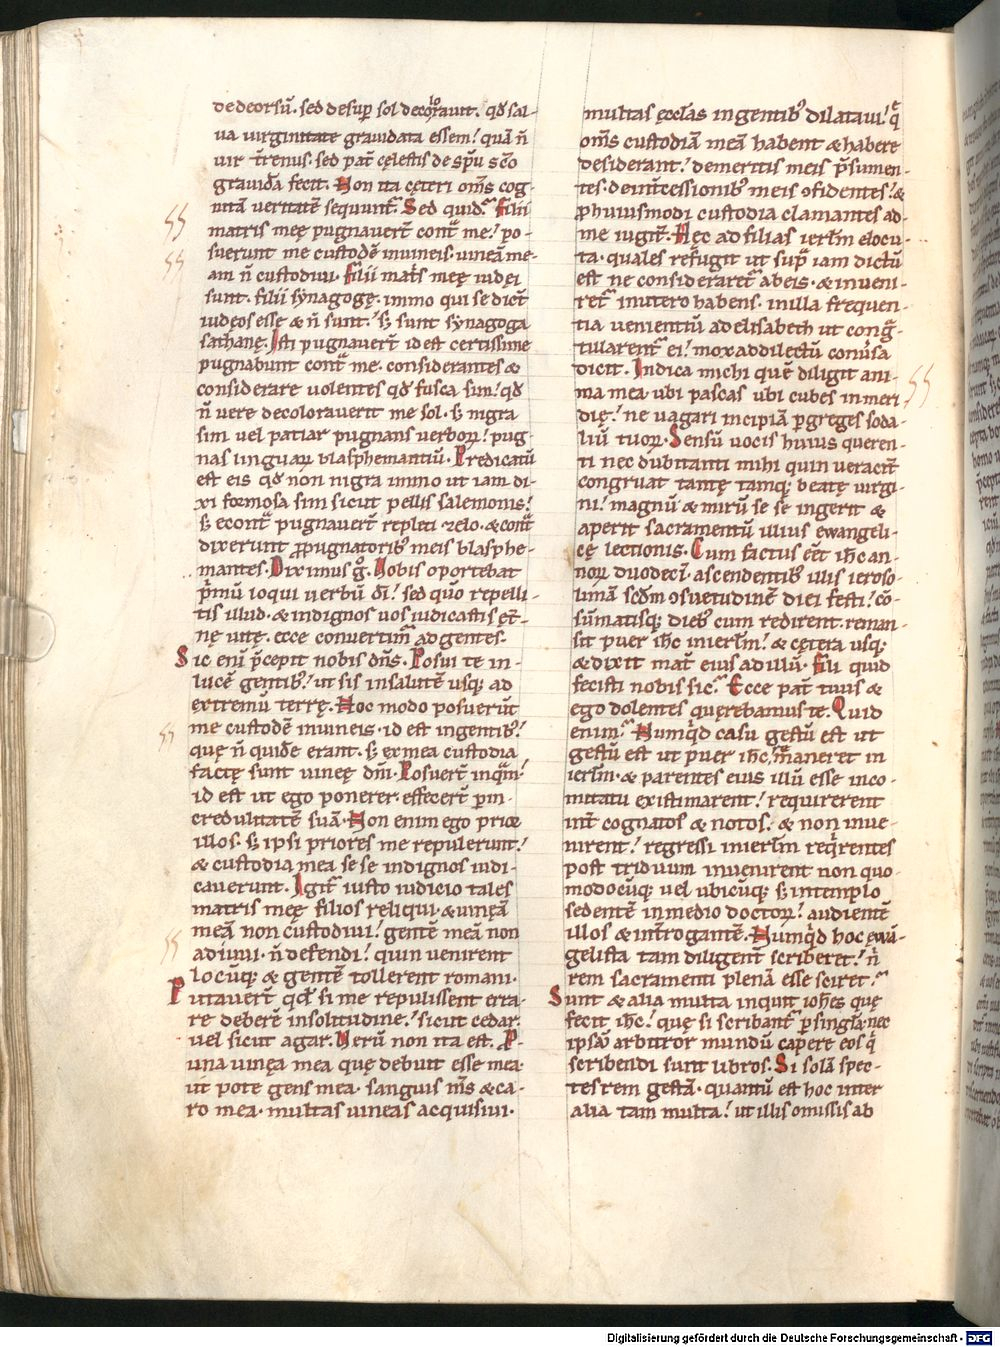 dedeorsū. sed desuꝑ sol decoloravit. qđ sal-
va virginitate gravidata essem! quā ñ
vir t̄renus. sed pat̄ cęlestis de sp̄u sc̄o
gravidā fecit. Non ita cęteri om̄s cog-
nitā veritatē sequunt̄. Sed quid? Filii
matris meę pugnavert̄ cont̄ me! po-
suerunt me custodē in vineis. vineā me-
am ñ custodivi. Filii mat̄s meę iudęi
sunt. filii synagogę. immo qui se dict̄
iudęos esse & ñ sunt! sȝ sunt synagoga
sathanę. Isti pugnavert̄ id est certissime
pugnabunt cont̄ me. considerantes &
considerare volentes qđ fusca sum! qđ
ñ vere decoloraverit me sol. sȝ nigra
sim vel patiar pugnans verboꝝ! pug-
nas linguaꝝ blasphemantiū. Predicatū
est eis qđ non nigra immo ut iam di-
xi formosa sim sicut pellis salemonis!
sȝ econt̄ pugnavert̄ repleti zelo. & cont̄
dixerunt ꝓpugnatoribꝰ meis blasphe-
mantes. Diximus g̊. Vobis oportebat
p̄mū loqui verbū dī! sed quō repelli-
tis illud. & indignos vos iudicastis ęt̄-
nę vitę. ecce convertim̄ ad gentes.
Sic enī p̄cepit nobis dn̄s. Posui te in-
lucē gentibꝰ! ut sis in salutē usqꝫ ad
extremū terrę. Hoc modo posuerūt
me custodē in vineis. id est in gentibꝰ!
quę ñ quidē erant. sȝ ex mea custodia
factę sunt vineę dn̄i. Posuert̄ inquā!
id est ut ego ponerer effecert̄ ꝑ in-
credulitatē suā. Non enim ego prior
illos. sȝ ipsi priores me repulerunt!
& custodia mea se se indignos iudi-
caverunt. Igit̄ iusto iudicio tales
matris meę filios reliqui. & vineā
meā non custodivi! gentē meā non
adiuvi. ñ defendi! quin venirent
locūqꝫ & gentē tollerent romani.
Putavert̄ qđ si me repulissent erra-
re deberē in solitudine! sicut cedar.
vel sicut agar. Verū non ita est. P̄-
una vinea mea quę debuit esse mea.
ut pote gens mea. sanguis m̄s & ca-
ro mea. multas vineas acquisivi.
multas ęccl̄as in gentibꝰ dilatavi! q̄
om̄s custodiā meā habent & habere
desiderant! de meritis meis p̄sumen-
tes. de int̄cessionibꝰ meis ꝯfidentes! &
ꝓ huiusmodi custodia clamantes ad-
me iugit̄. Hec ad filias ierl̄m elocu-
ta. quales refugit ut sup̄ iam dictū
est ne consideraret̄ ab eis. & inveni-
ret̄ in utero habens. in illa frequen-
tia venientiū ad elisabeth ut congͣ-
tularent̄ ei! mox ad dilectū conv̄sa
dicit. Indica michi quē diligit ani-
ma mea. ubi pascas ubi cubes in meri-
dię! ne vagari incipiā ꝑ greges soda-
liū tuoꝝ. Sensū vocis huius queren-
ti nec dubitanti mihi quin veracit̄
congruat tantę tamqꝫ beatę virgi-
ni! magnū & mirū se se ingerit &
aperit sacramentū illius ewangeli-
cę lectionis. Cum factus eēt ih̄c an-
noꝝ duodecī. ascendentibꝰ illis ieroso-
limā sc̄dm ꝯsuetudinē diei festi! cō-
sūmatisqꝫ diebꝰ cum redirent. reman-
sit puer ih̄c in ierl̄m! & cętera usqꝫ
& dixit mat̄ eius ad illū. Fili quid
fecisti nobis sic? Ecce pat̄ tuus &
ego dolentes querebamus te. Quid
enim? Numq̇d casu gestū est ut
gestū est ut puer ih̄c remaneret in
ierl̄m. & parentes eius illū esse in co-
mitatu existimarent! requirerent
int̄ cognatos & notos. & non inve-
nirent! regressi in ierl̄m req̇rentes
post triduum invenirent non quo-
modocūqꝫ vel ubicūqꝫ sȝ in templo
sedentē in medio doctoꝝ! audientē
illos & int̄rogantē. Numq̇d hoc ewā-
gelista tam diligent̄ scriberet! ñ
rem sacramenti plenā esse sciret?
Sunt & alia multa inquit ioh̄es quę
fecit ih̄c! quę si scribant̄ ꝑ singl̄a. nec
ipsū arbitror mundū capere eos q̇
scribendi sunt libros. Si solā spec-
tes rem gestā. quantū est hoc inter
alia tam multa! ut illis omissis ab
Digitalisierung gefördert durch die Deutsche Forschungsgemeinschaft - DFG